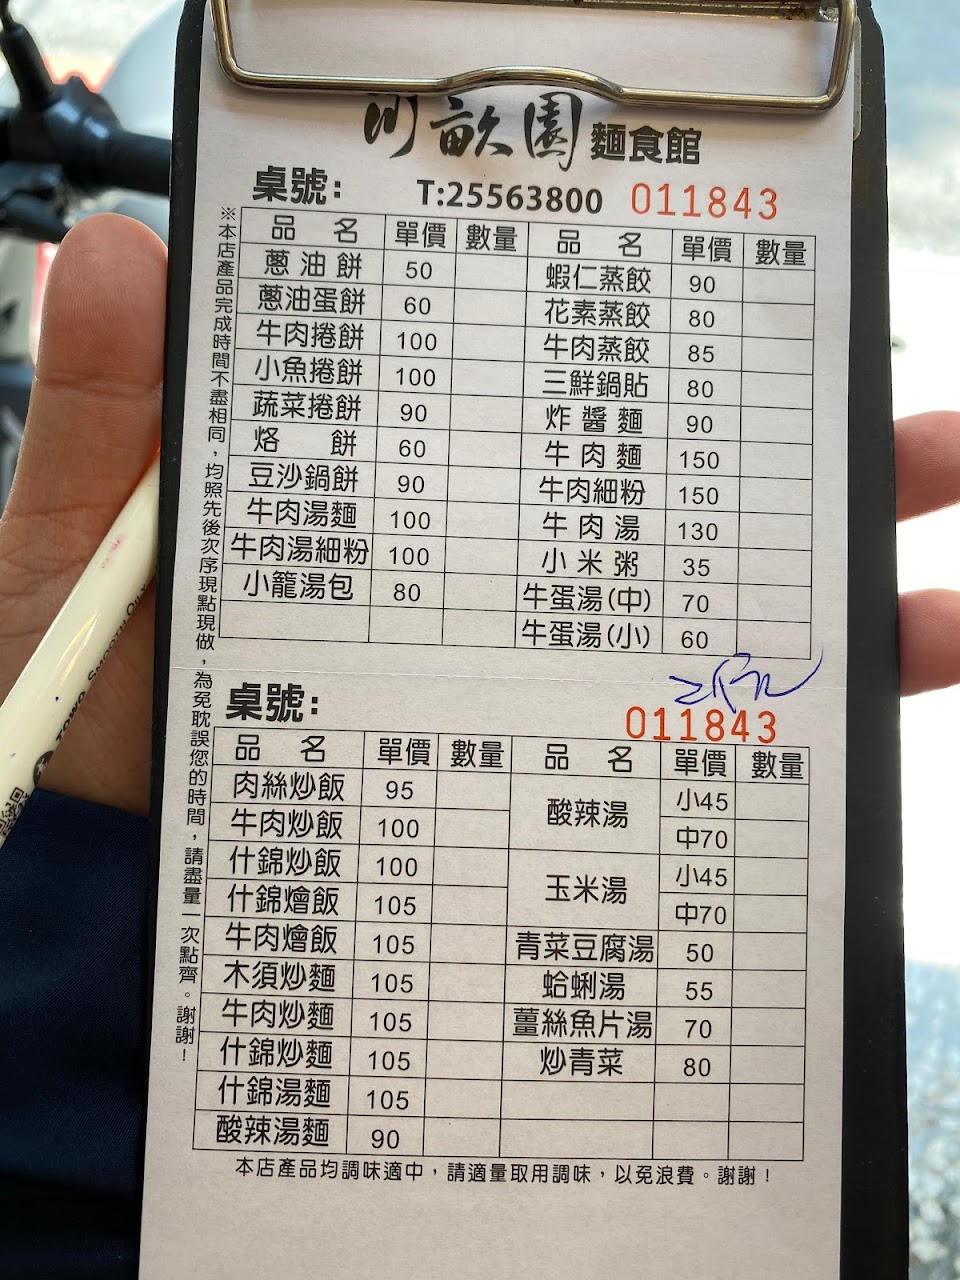 川畝園 麵食館
桌號: T:25563800 011843
品 名 單價 數量 品 名 單價 數量
蔥油餅 50 蝦仁蒸餃 90
蔥油蛋餅 60 花素蒸餃 80
牛肉捲餅 100 牛肉蒸餃 85
小魚捲餅 100 三鮮鍋貼 80
蔬菜捲餅 90 炸醬麵 90
烙 餅 60 牛肉麵 150
豆沙鍋餅 90 牛肉細粉 150
牛肉湯麵 100 牛肉湯 130
牛肉湯細粉 100 小米粥 35
小籠湯包 80 牛蛋湯(中) 70
牛蛋湯(小) 60
桌號: 011843
品 名 單價 數量 品 名 單價 數量
肉絲炒飯 95 酸辣湯 小45
牛肉炒飯 100 中70
什錦炒飯 100 玉米湯 小45
什錦燴飯 105 中70
牛肉燴飯 105 青菜豆腐湯 50
木須炒麵 105 蛤蜊湯 55
牛肉炒麵 105 薑絲魚片湯 70
什錦炒麵 105 炒青菜 80
什錦湯麵 105
酸辣湯麵 90
本店產品均調味適中，請適量取用調味，以免浪費。謝謝！
※本店產品完成時間不盡相同，均照先後次序現點現做，為免耽誤您的時間，請盡量一次點齊。謝謝！